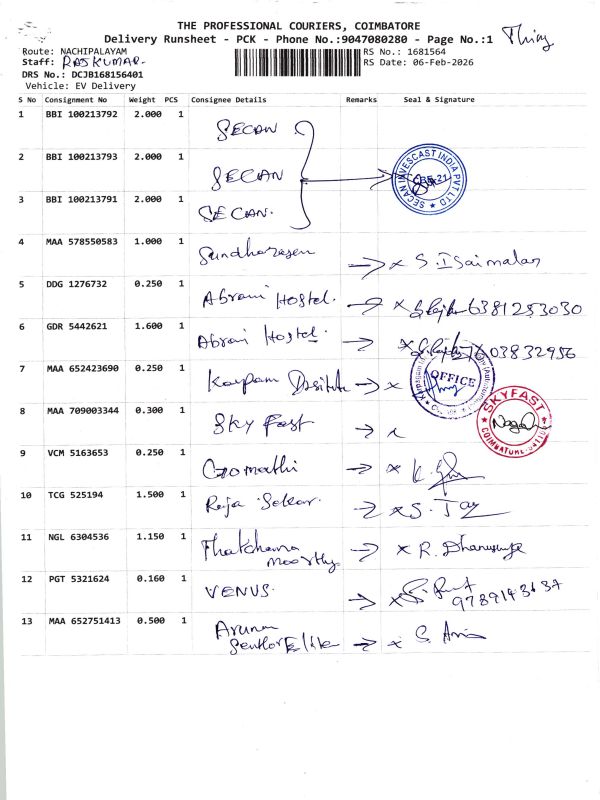 THE PROFESSIONAL COURIERS, COIMBATORE
Delivery Runsheet - PCK - Phone No.:9047080280 - Page No.:1
Route: NACHIPALAYAM
RS No.: 1681564
Staff: RAJKUMAR.
RS Date: 06-Feb-2026
DRS No.: DCJB168156401
Vehicle: EV Delivery
S No Consignment No Weight PCS Consignee Details Remarks Seal & Signature
1 BBI 100213792 2.000 1 SECAN
2 BBI 100213793 2.000 1 SECAN
SECAN INVESCAST INDIA PVT LTD
3 BBI 100213791 2.000 1 SECAN.
4 MAA 578550583 1.000 1 Sundharesen → x S. Isaimalar
5 DDG 1276732 0.250 1 Abrami Hostel. → x 6381253030
6 GDR 5442621 1.600 1 Abrami Hostel. → x
7 MAA 652423690 0.250 1 Karpam → x
OFFICE
8 MAA 709003344 0.300 1 SKY Fast → x
SKYFAST
COIMBATORE
9 VCM 5163653 0.250 1 Gomathi → x K.
10 TCG 525194 1.500 1 Raja Sekar. → x S. Jay
11 NGL 6304536 1.150 1 Thatchana moorthy → x R.
12 PGT 5321624 0.160 1 VENUS. → x
13 MAA 652751413 0.500 1 Aruna → x S.